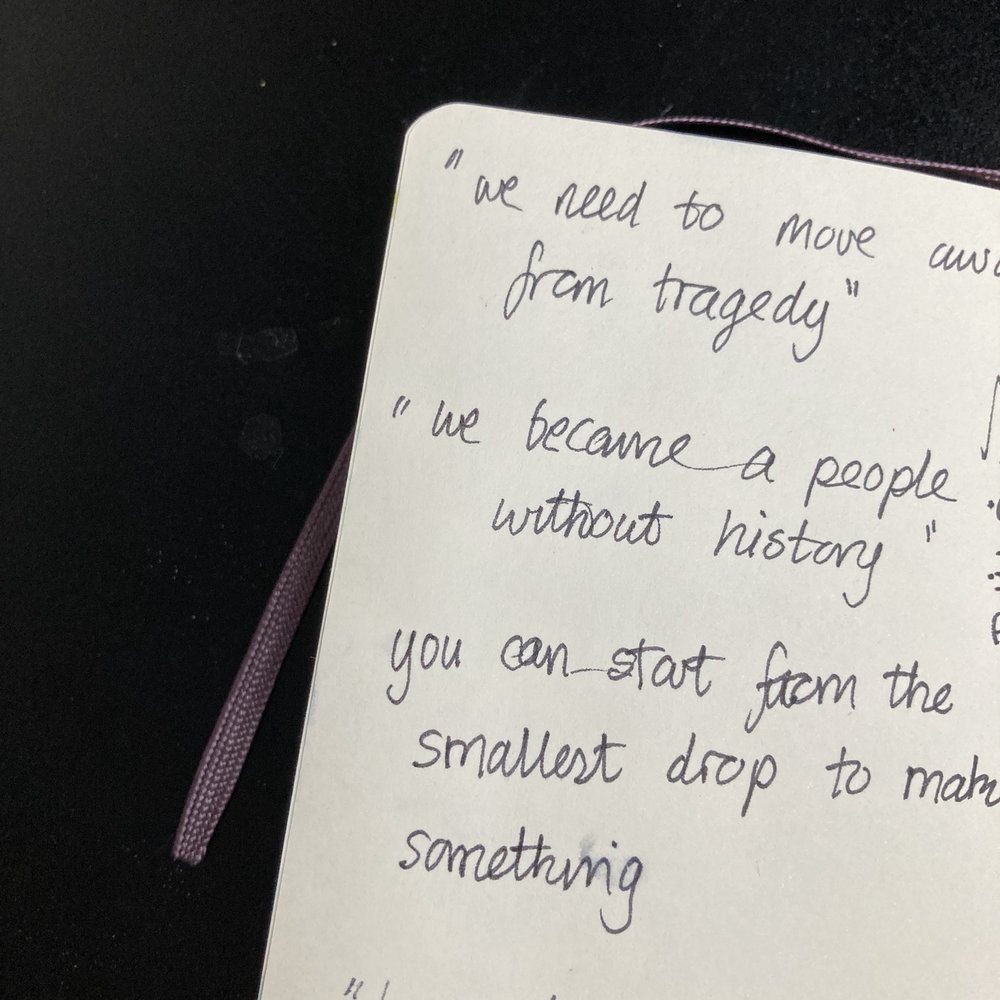 "we need to move
from tragedy"
"we became a people
without history"
you can start from the
smallest drop to
something